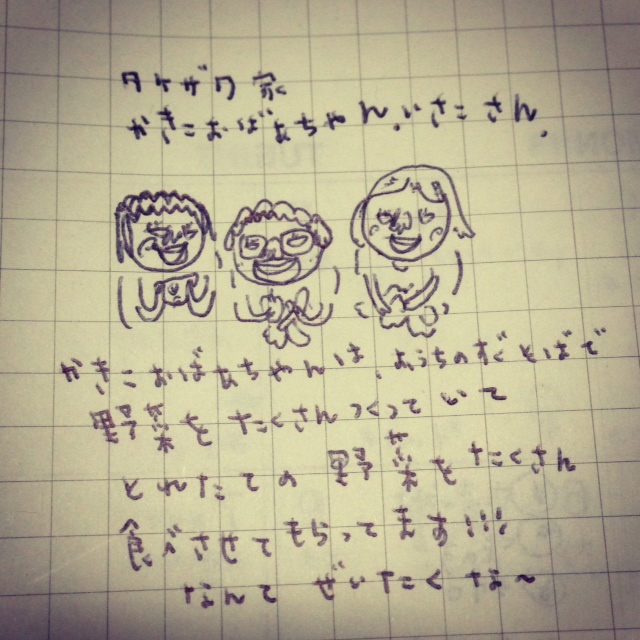 タケザワ家
かきこおばあちゃん、いさこさん、
かきこおばあちゃんは、おうちのすぐとばで
野菜をたくさんつくっていて
とれたての野菜をたくさん
食べさせてもらってます!!!
なんてぜいたくな〜